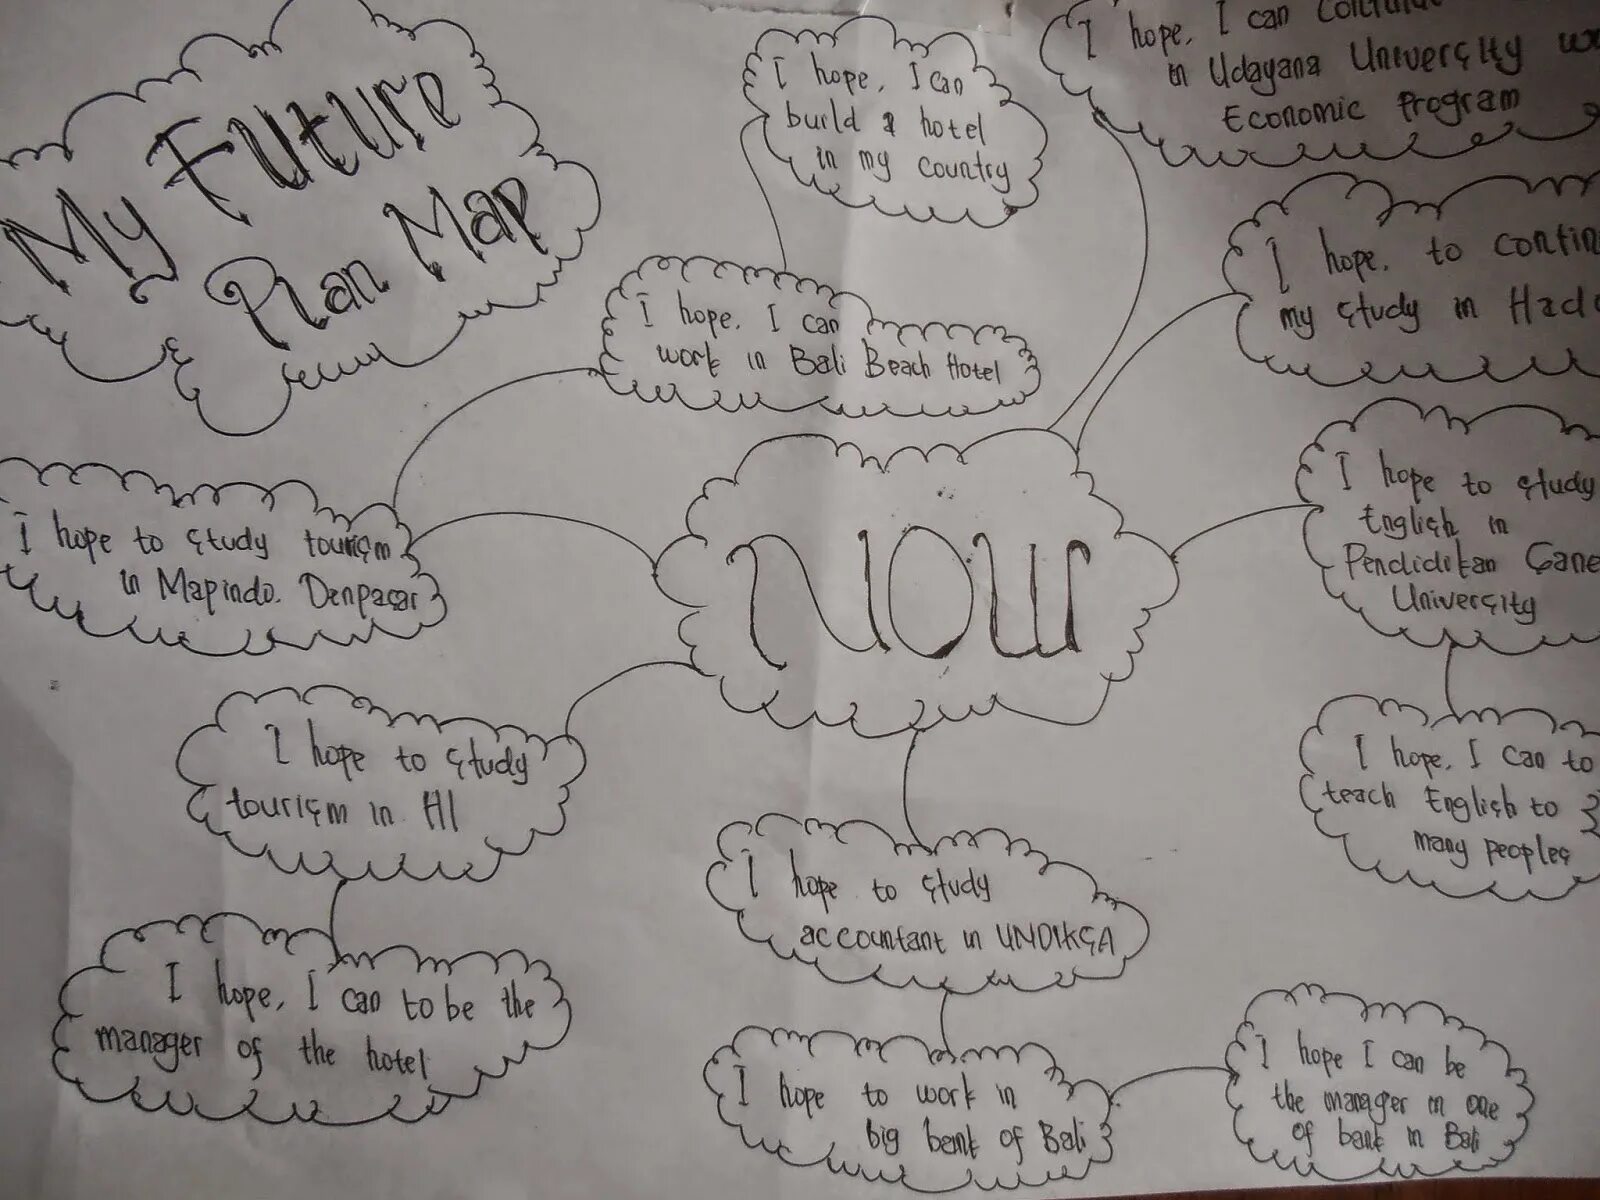 My Future
Plan Map
I hope, I can
build a hotel
in my country
I hope, I can
in Udayana University
Economic Program
I hope, to
my study in
I hope, I can
work in Bali Beach Hotel
NOW
I hope to study
English in
Pendidikan
University
I hope, I can to
teach English to
many peoples
I hope to study tourism
in Mapindo. Denpasar
I hope to study
tourism in HI
I hope, I can to be the
manager of the hotel
I hope to study
accountant in UNDIKSA
I hope to work in
big bank of Bali
I hope I can be
the manager in one
of bank in Bali